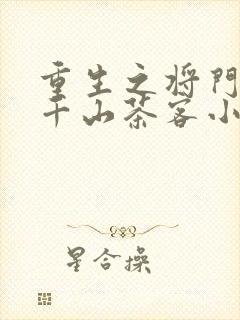 重生之将门
千山茶客小
星合操